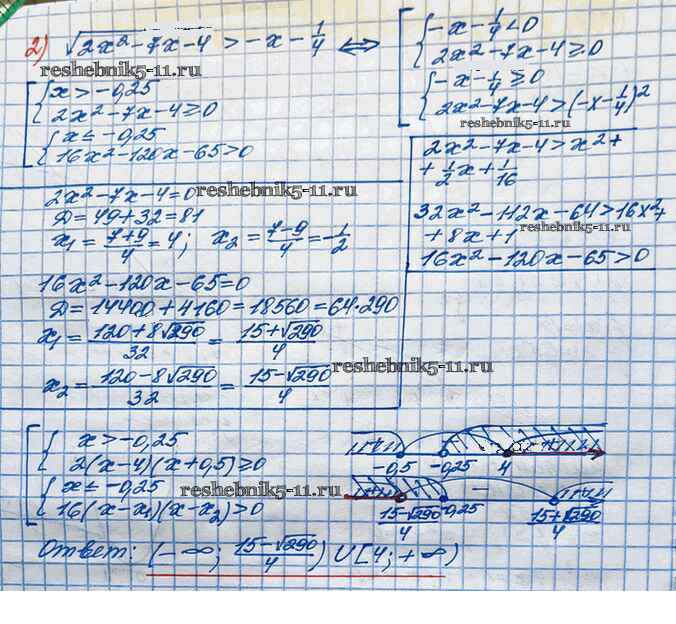 2) √2x²-7x-4 > -x - 1/4 ⟺ [ { -x - 1/4 < 0
2x²-7x-4 ≥ 0
{ -x - 1/4 ≥ 0
2x²-7x-4 > (-x - 1/4)²
reshebnik5-11.ru
reshebnik5-11.ru
[ { x > -0,25
2x²-7x-4 ≥ 0
{ x ≤ -0,25
16x²-120x-65 > 0
2x²-7x-4 > x² +
+ 1/2 x + 1/16
32x²-112x-64 > 16x² +
+ 8x + 1
16x²-120x-65 > 0
2x²-7x-4 = 0
reshebnik5-11.ru
Д = 49+32 = 81
x₁ = (7+9)/4 = 4; x₂ = (7-9)/4 = -1/2
16x²-120x-65 = 0
Д = 14400 + 4160 = 18560 = 64·290
x₁ = (120+8√290)/32 = (15+√290)/4
reshebnik5-11.ru
x₂ = (120-8√290)/32 = (15-√290)/4
[ { x > -0,25
2(x-4)(x+0,5) ≥ 0
{ x ≤ -0,25
16(x-x₁)(x-x₂) > 0
reshebnik5-11.ru
-0,5 -0,25 4
(15-√290)/4 -0,25 (15+√290)/4
Ответ: (-∞; (15-√290)/4) ∪ [4; +∞)